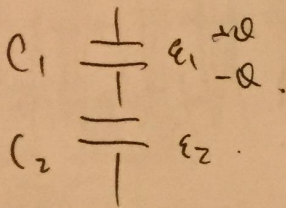 C₁ ε₁ +Q
-Q.
C₂ ε₂.